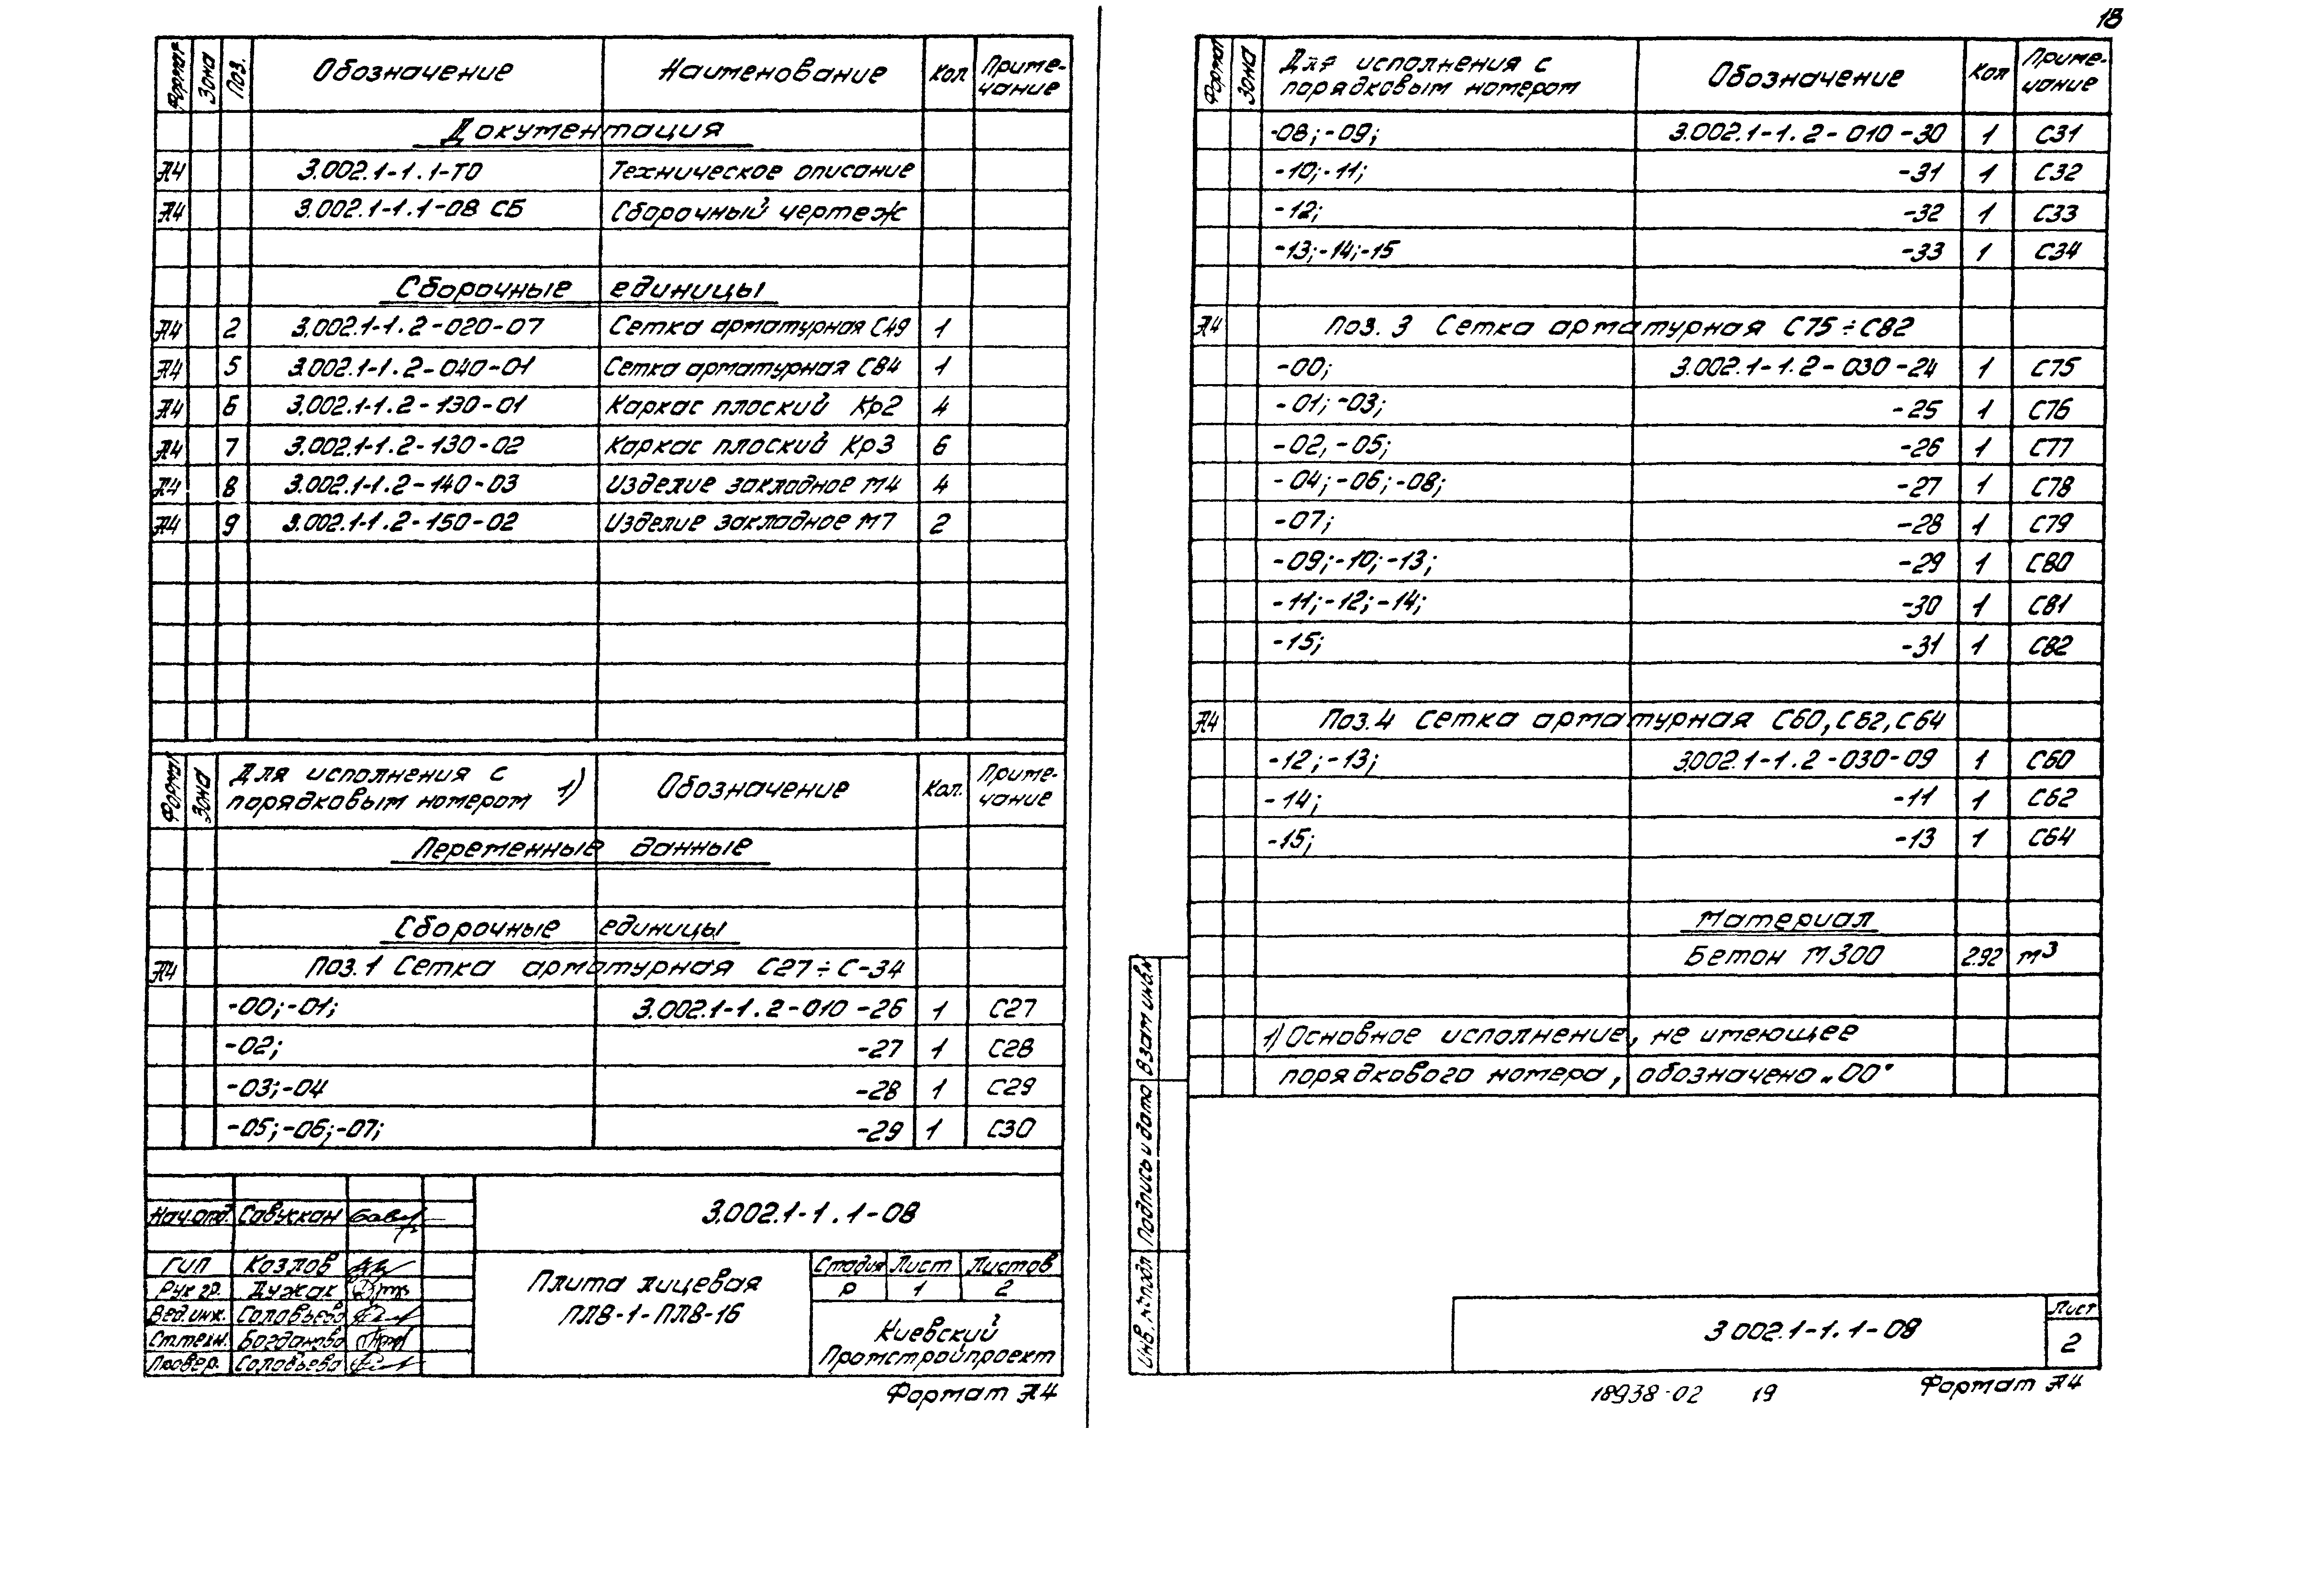 Формат Зона Поз. Обозначение Наименование Кол Приме-
чание
Документация
А4 3.002.1-1.1-ТО Техническое описание
А4 3.002.1-1.1-08 СБ Сборочный чертеж
Сборочные единицы
А4 2 3.002.1-1.2-020-07 Сетка арматурная С49 1
А4 5 3.002.1-1.2-040-01 Сетка арматурная С84 1
А4 6 3.002.1-1.2-130-01 Каркас плоский Кр2 4
А4 7 3.002.1-1.2-130-02 Каркас плоский Кр3 6
А4 8 3.002.1-1.2-140-03 Изделие закладное М4 4
А4 9 3.002.1-1.2-150-02 Изделие закладное М7 2
Формат Зона Для исполнения с
порядковым номером 1) Обозначение Кол. Приме-
чание
Переменные данные
Сборочные единицы
А4 Поз.1 Сетка арматурная С27÷С-34
-00;-01; 3.002.1-1.2-010-26 1 С27
-02; -27 1 С28
-03;-04 -28 1 С29
-05;-06;-07; -29 1 С30
3.002.1-1.1-08
Нач.отд. Савускан
ГИП Козлов
Рук гр. Дужак
Вед.инж. Соловьева
Ст.техн. Богданова
Провер. Соловьева
Плита лицевая
ПЛ8-1-ПЛ8-16
Стадия Лист Листов
Р 1 2
Киевский
Промстройпроект
Формат А4
18
Формат Зона Для исполнения с
порядковым номером Обозначение Кол Приме-
чание
-08;-09; 3.002.1-1.2-010-30 1 С31
-10;-11; -31 1 С32
-12; -32 1 С33
-13;-14;-15 -33 1 С34
А4 Поз. 3 Сетка арматурная С75÷С82
-00; 3.002.1-1.2-030-24 1 С75
-01;-03; -25 1 С76
-02,-05; -26 1 С77
-04;-06;-08; -27 1 С78
-07; -28 1 С79
-09;-10;-13; -29 1 С80
-11;-12;-14; -30 1 С81
-15; -31 1 С82
А4 Поз.4 Сетка арматурная С60,С62,С64
-12;-13; 3.002.1-1.2-030-09 1 С60
-14; -11 1 С62
-15; -13 1 С64
Материал
Бетон М300 2.92 м³
1) Основное исполнение, не имеющее
порядкового номера, обозначено „00"
Взам инв.№
Подпись и дата
Инв.№ подл
3.002.1-1.1-08
Лист
2
18938-02 19
Формат А4